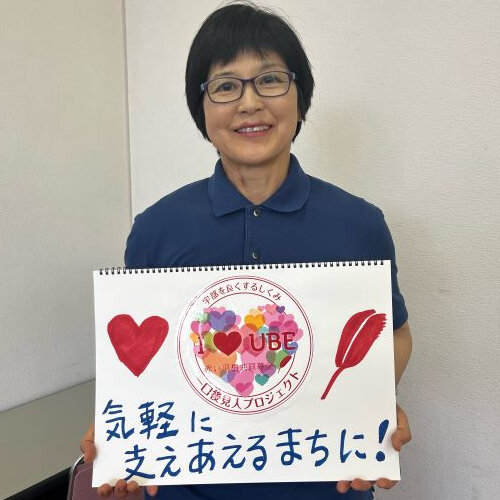 宇部を良くするしくみ
I ❤ UBE
一口後見人プロジェクト
気軽に
支えあえるまちに!